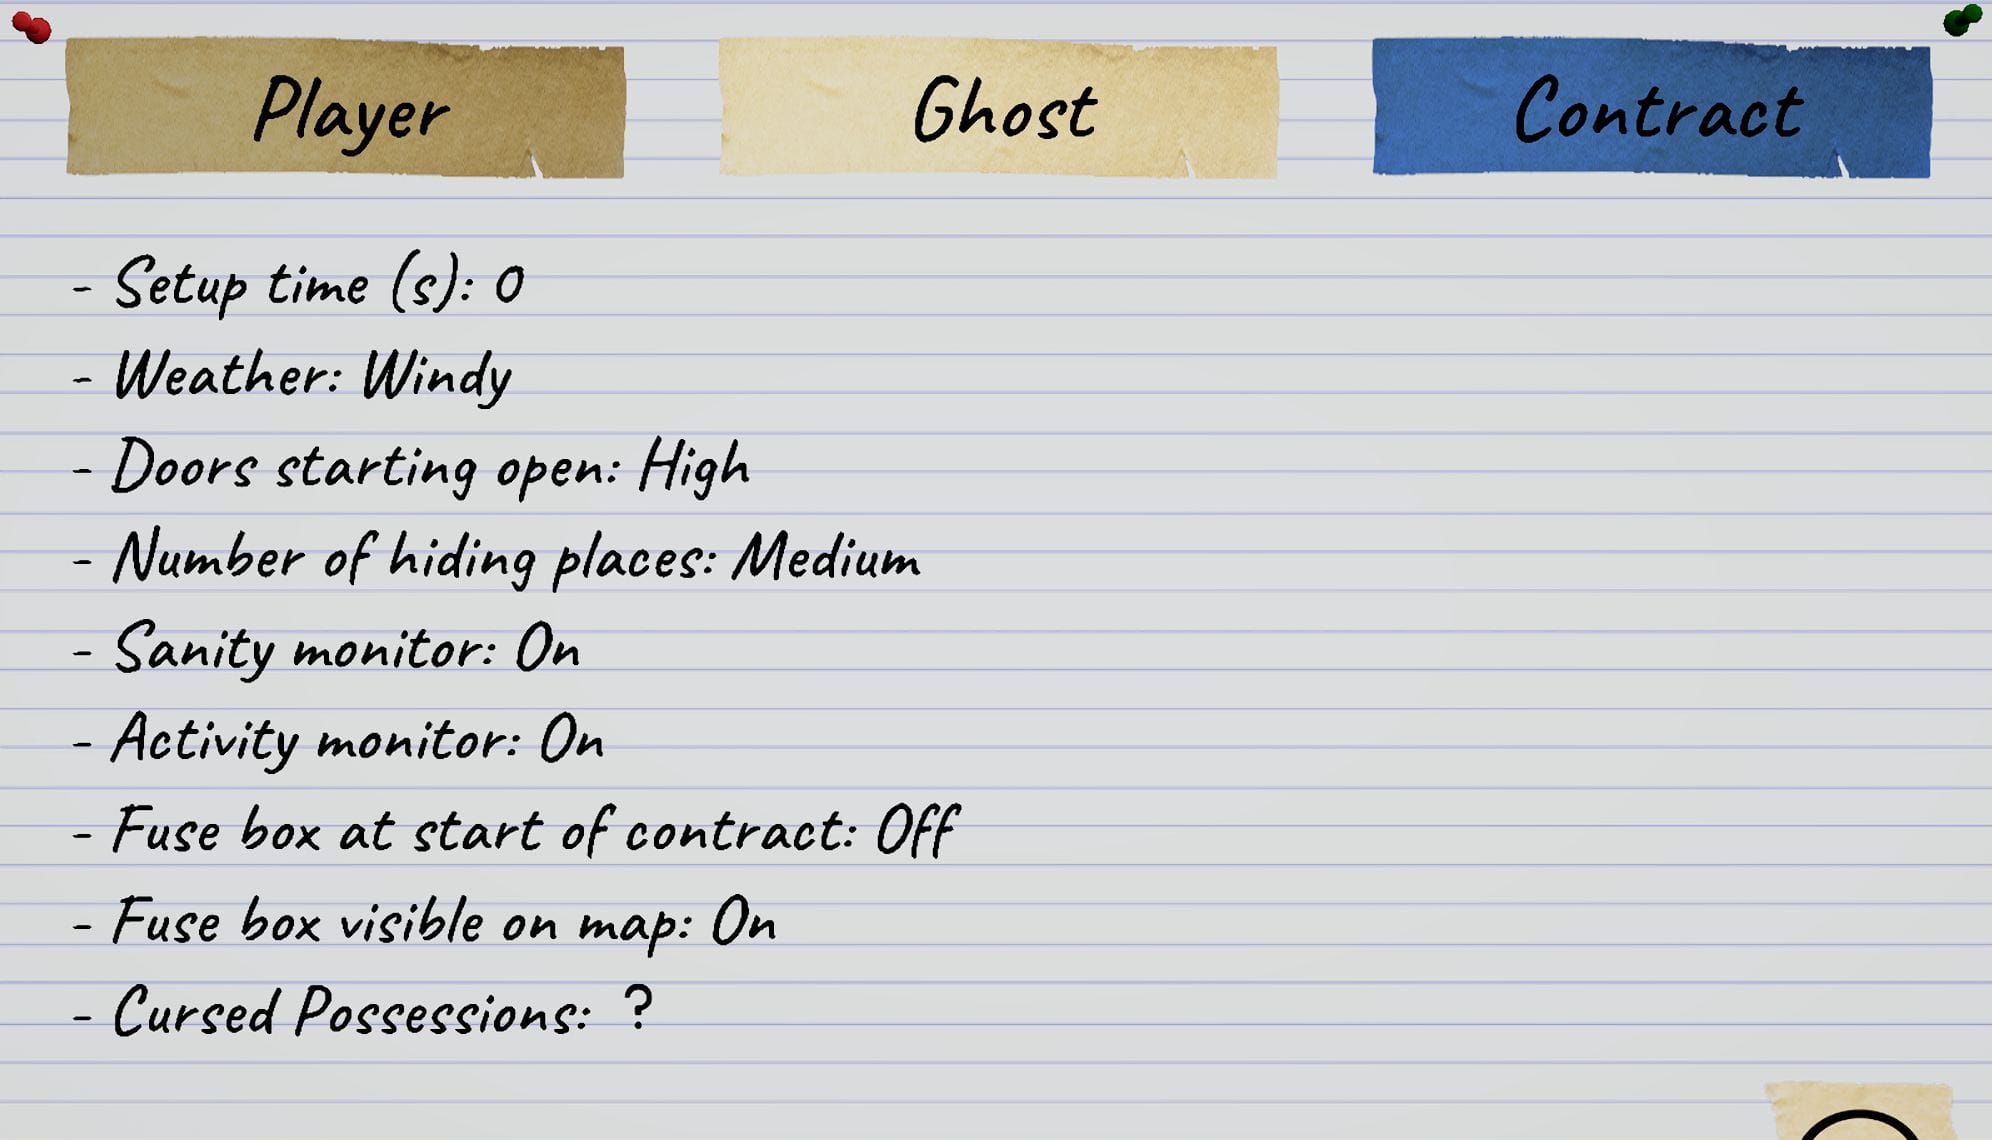 Player
Ghost
Contract
- Setup time (s): 0
- Weather: Windy
- Doors starting open: High
- Number of hiding places: Medium
- Sanity monitor: On
- Activity monitor: On
- Fuse box at start of contract: Off
- Fuse box visible on map: On
- Cursed Possessions: ?